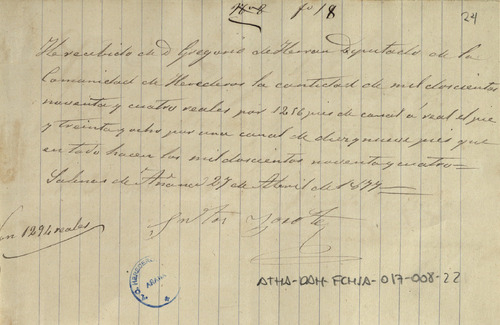 nº 18
24
He recibido de D Gregorio de Herran Diputado de la
Comunidad de Herederos la cantidad de mil doscientos
noventa y cuatro reales por 1256 pies de canal á real el pie
y treinta y ocho por una canal de diez y nueve pies que
en todo hacen los mil doscientos noventa y cuatro=
Salinas de Añana 27 de Abril de 1877=
Son 1294 reales
ATHA-DAH-FCHSA-017-008-22